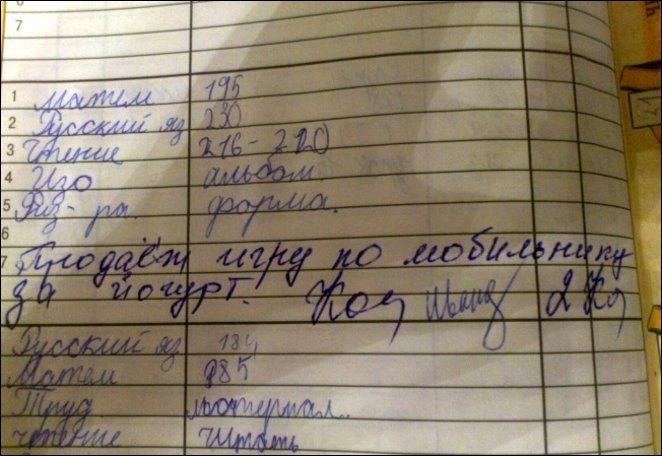 6
7
1 матем 195
2 Русский яз 230
3 Чтение 216-220
4 Изо альбом
5 Физ-ра. форма.
6
7 Продаёт игру по мобильнику
за йогурт. 2
Русский яз 184
Матем 185
Труд. материал.
чтение читать